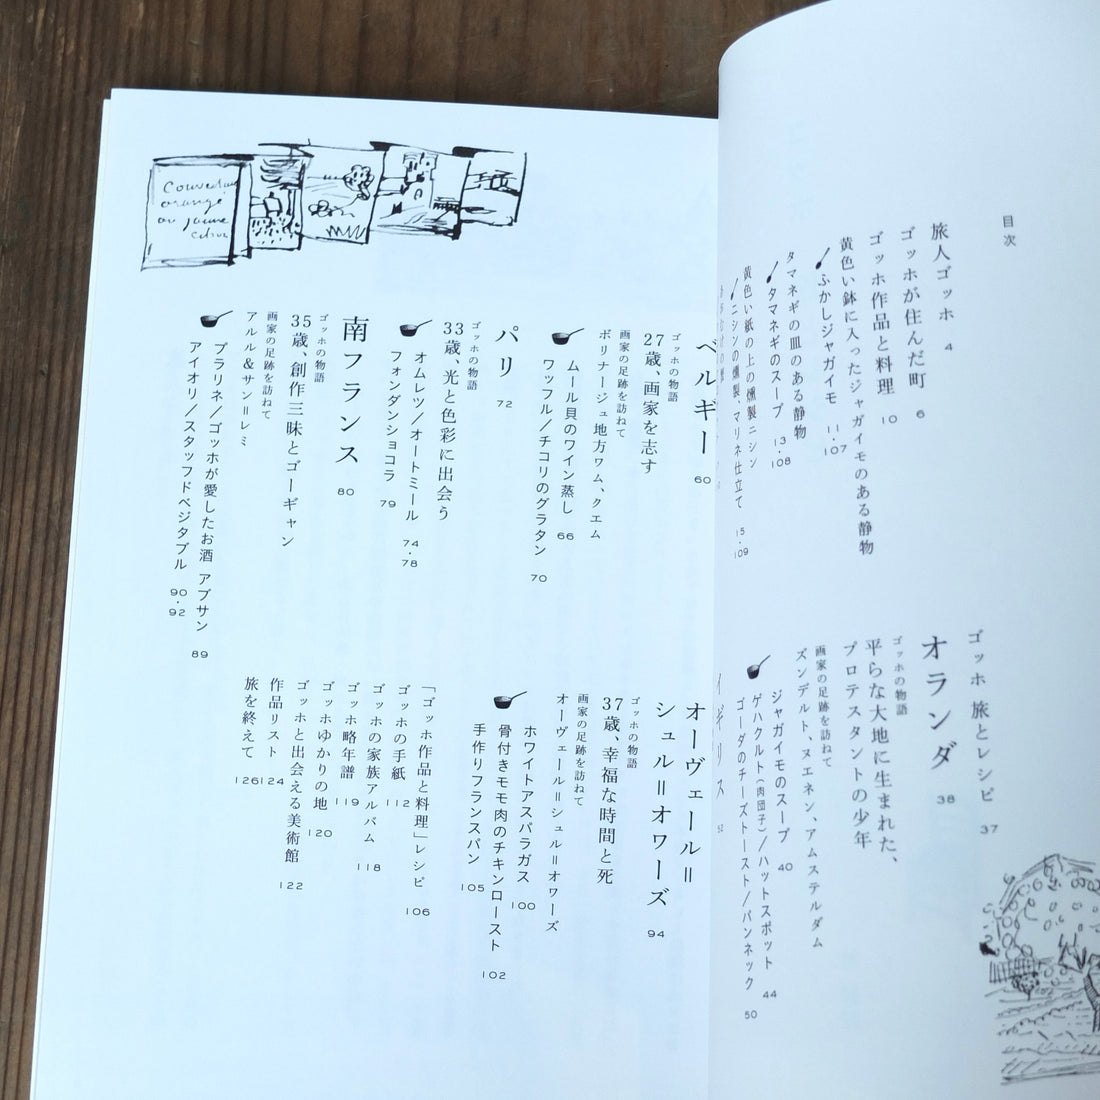 目次
旅人ゴッホ 4
ゴッホが住んだ町 6
ゴッホ作品と料理 10
黄色い鉢に入ったジャガイモのある静物
ふかしジャガイモ 11・107
タマネギの皿のある静物
タマネギのスープ 13・108
黄色い紙の上の燻製ニシン
ニシンの燻製、マリネ仕立て 15・109
ゴッホ 旅とレシピ 37
オランダ 38
ゴッホの物語
平らな大地に生まれた、
プロテスタントの少年
画家の足跡を訪ねて
ズンデルト、ヌエネン、アムステルダム
ジャガイモのスープ 40
ゲハクルト(肉団子)/ハットスポット 44
ゴーダのチーズトースト/パンネック 50
イギリス 52
ベルギー 60
ゴッホの物語
27歳、画家を志す
画家の足跡を訪ねて
ボリナージュ地方ワム、クエム
ムール貝のワイン蒸し 66
ワッフル/チコリのグラタン 70
パリ 72
ゴッホの物語
33歳、光と色彩に出会う
オムレツ/オートミール 74・78
フォンダンショコラ 79
南フランス 80
ゴッホの物語
35歳、創作三昧とゴーギャン
画家の足跡を訪ねて
アルル&サン=レミ
プラリネ/ゴッホが愛したお酒 アブサン 89
アイオリ/スタッフドベジタブル 90・92
オーヴェール=
シュル=オワーズ 94
ゴッホの物語
37歳、幸福な時間と死
画家の足跡を訪ねて
オーヴェール=シュル=オワーズ
ホワイトアスパラガス 100
骨付きモモ肉のチキンロースト 102
手作りフランスパン 105
「ゴッホ作品と料理」レシピ 106
ゴッホの手紙 112
ゴッホの家族アルバム 118
ゴッホ略年譜 119
ゴッホゆかりの地 120
ゴッホと出会える美術館 122
作品リスト 124
旅を終えて 126
orange
au jaune